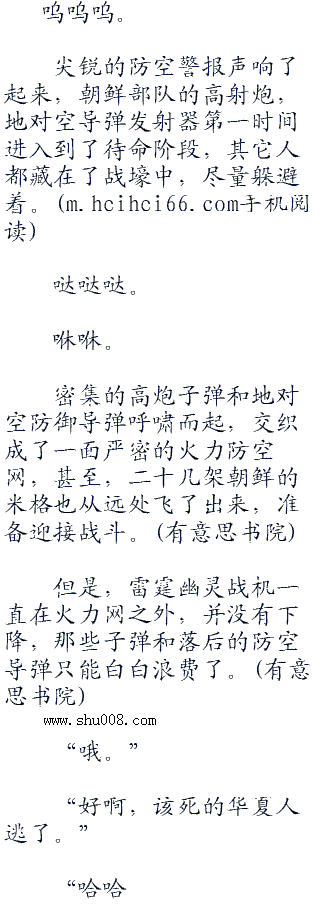 呜呜呜。
尖锐的防空警报声响了
起来，朝鲜部队的高射炮，
地对空导弹发射器第一时间
进入到了待命阶段，其它人
都藏在了战壕中，尽量躲避
着。(m.hcihci66.com手机阅
读)
哒哒哒。
咻咻。
密集的高炮子弹和地对
空防御导弹呼啸而起，交织
成了一面严密的火力防空
网，甚至，二十几架朝鲜的
米格也从远处飞了出来，准
备迎接战斗。(有意思书院)
但是，雷霆幽灵战机一
直在火力网之外，并没有下
降，那些子弹和落后的防空
导弹只能白白浪费了。(有意
思书院)
www.shu008.com
“哦。”
“好啊，该死的华夏人
逃了。”
“哈哈